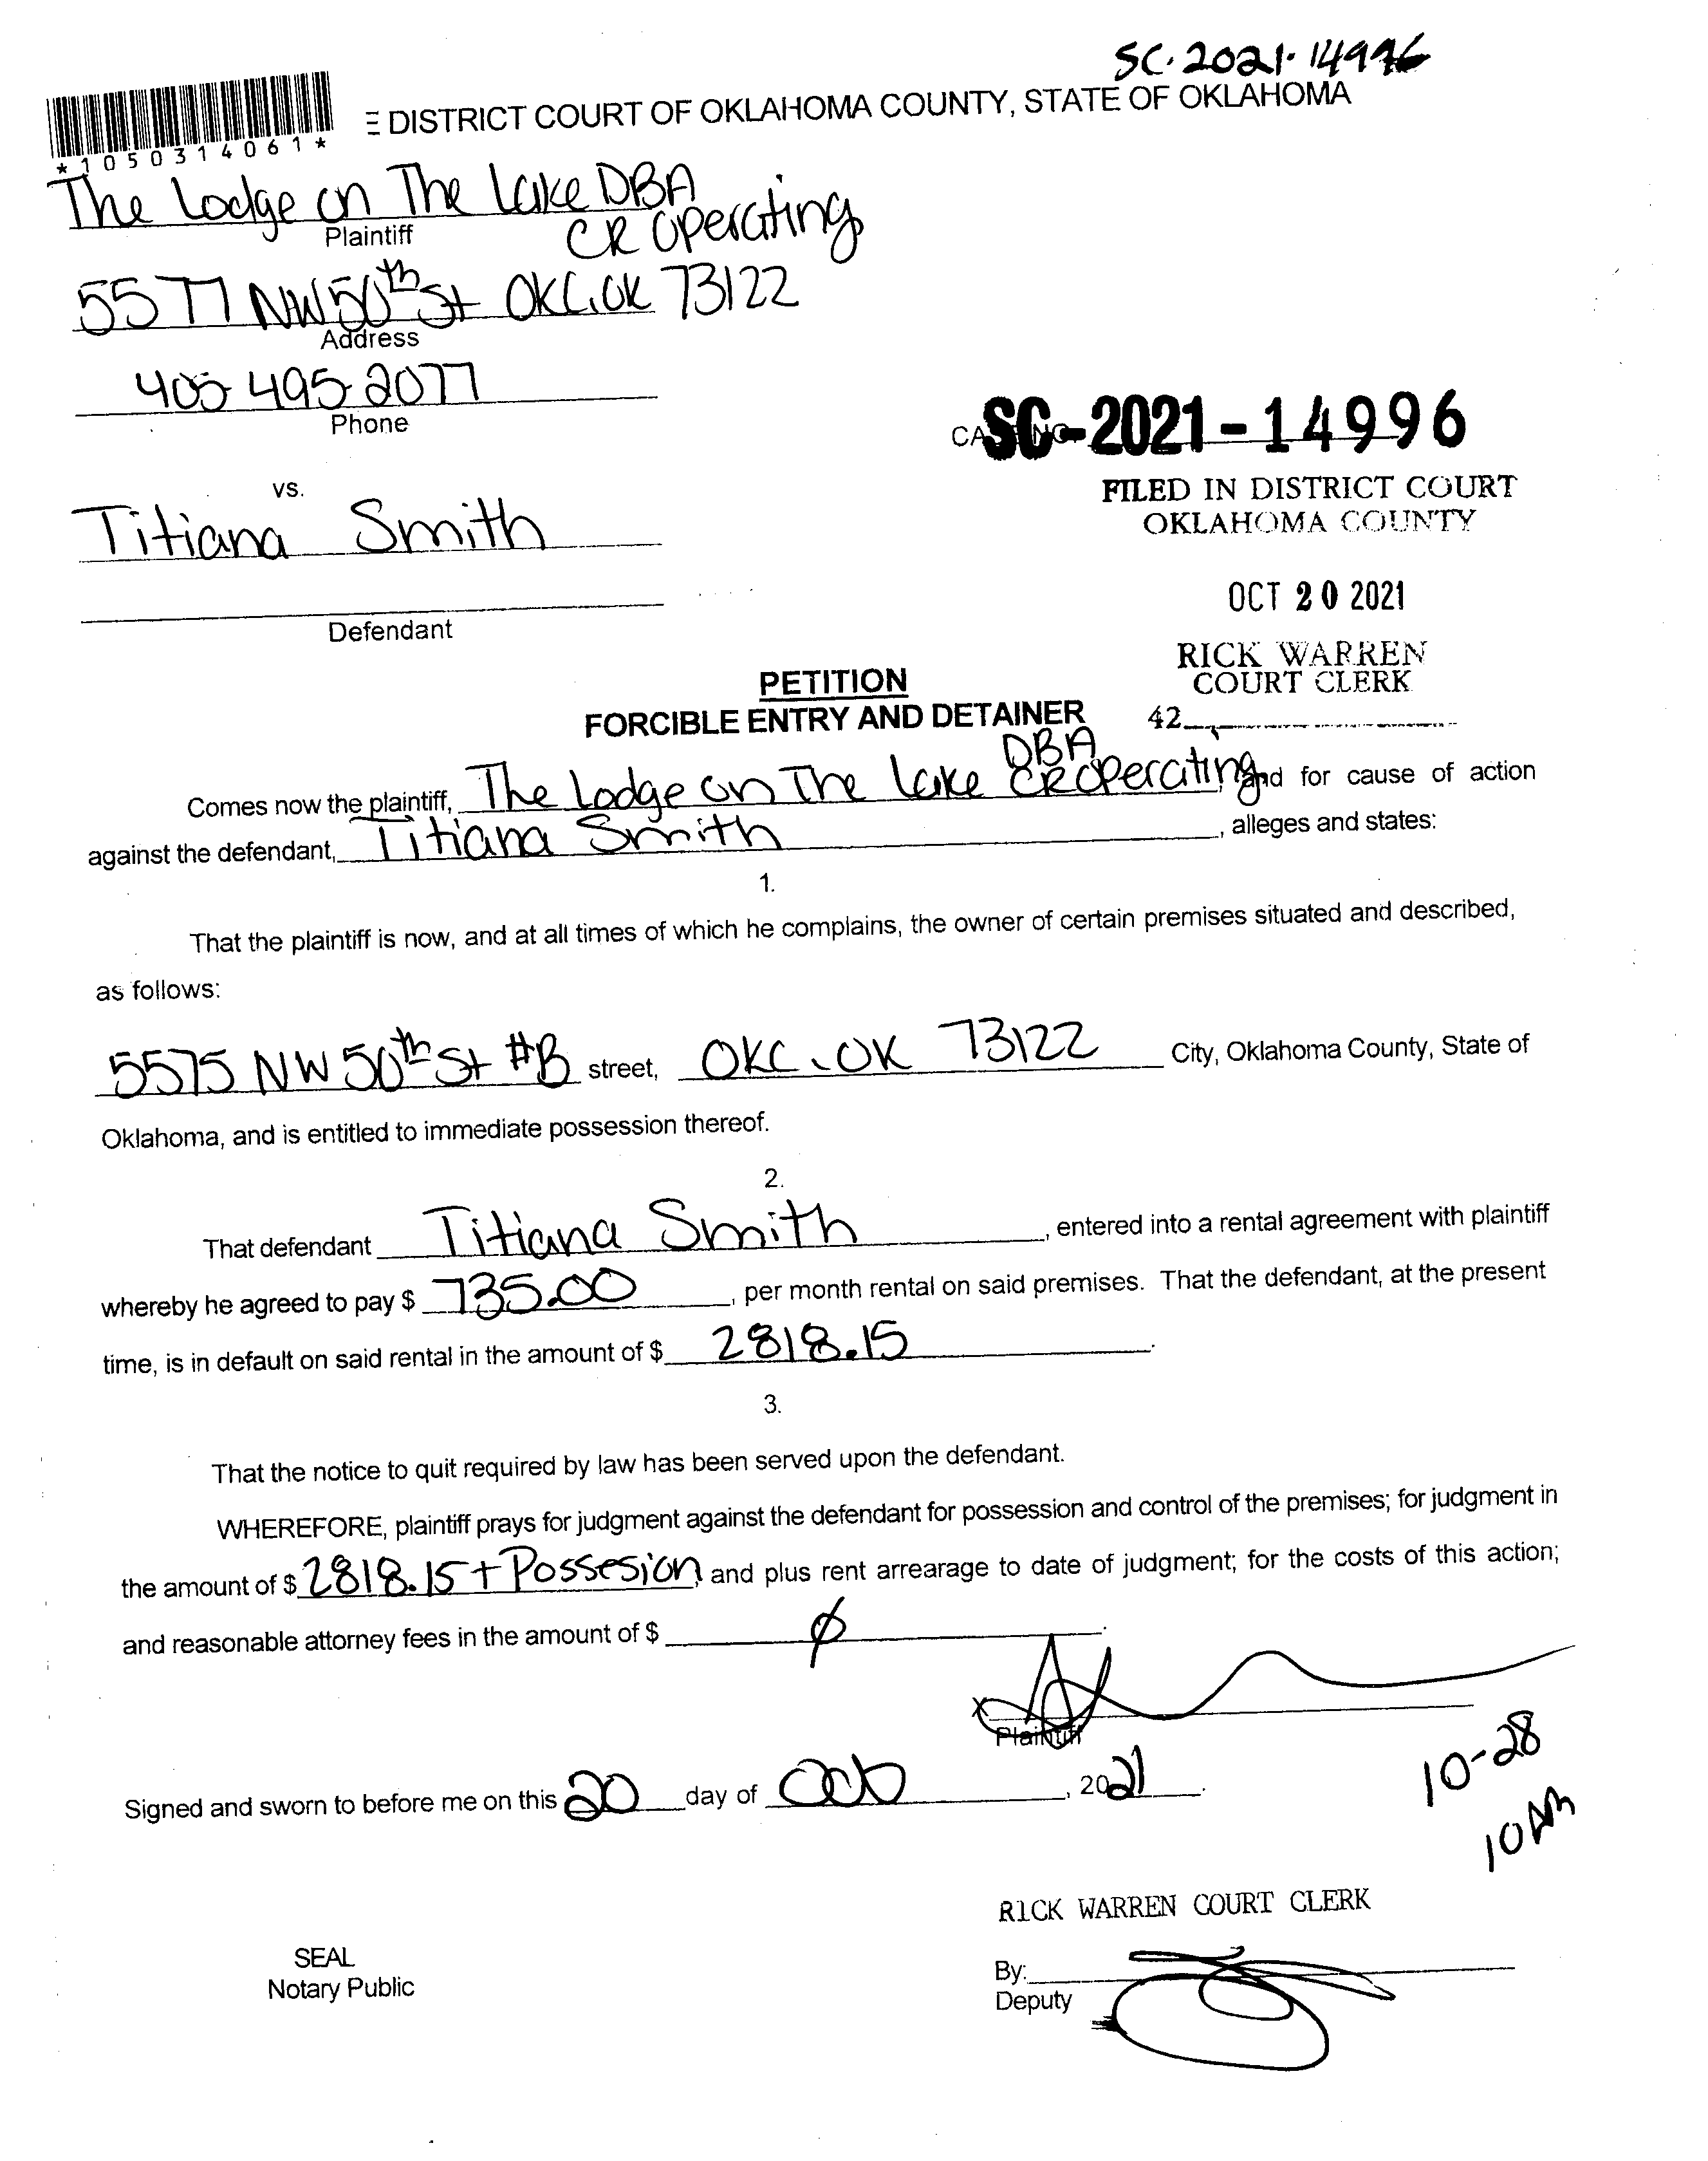 SC-2021-14996
E DISTRICT COURT OF OKLAHOMA COUNTY, STATE OF OKLAHOMA
*1050314061*
The Lodge on The Lake DBA
CR Operating
Plaintiff
5577 NW 50th St OKC, OK 73122
Address
405-495-2077
Phone
SC-2021-14996
vs.
FILED IN DISTRICT COURT
OKLAHOMA COUNTY
Titiana Smith
OCT 20 2021
Defendant
RICK WARREN
COURT CLERK
PETITION
FORCIBLE ENTRY AND DETAINER
42
DBA
Comes now the plaintiff, The Lodge on The Lake CR Operating, and for cause of action
against the defendant, Titiana Smith, alleges and states:
1.
That the plaintiff is now, and at all times of which he complains, the owner of certain premises situated and described,
as follows:
5575 NW 50th St #B street, OKC, OK 73122 City, Oklahoma County, State of
Oklahoma, and is entitled to immediate possession thereof.
2.
That defendant Titiana Smith, entered into a rental agreement with plaintiff
whereby he agreed to pay $ 735.00, per month rental on said premises. That the defendant, at the present
time, is in default on said rental in the amount of $ 2818.15.
3.
That the notice to quit required by law has been served upon the defendant.
WHEREFORE, plaintiff prays for judgment against the defendant for possession and control of the premises; for judgment in
the amount of $ 2818.15 + Possesion, and plus rent arrearage to date of judgment; for the costs of this action;
and reasonable attorney fees in the amount of $ ∅.
x
Plaintiff
10-28
10AM
Signed and sworn to before me on this 20 day of Oct, 2021.
RICK WARREN COURT CLERK
SEAL
Notary Public
By:
Deputy